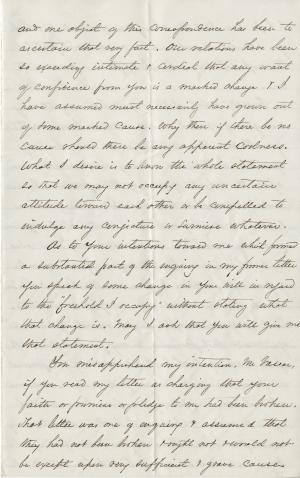 and one object of this correspondence has been to
ascertain that very fact. Our relations have been
so exceeding intimate & cordial that any want
of confidence from you is a marked change & I
have assumed must necessarily have grown out
of some marked cause. Why then if there be no
cause should there be any apparent coolness.
What I desire is to know the whole statement
so that we may not occupy any uncertain
attitude toward each other or be compelled to
indulge any conjecture or surmise whatever.
As to your intentions toward me which formed
a substantial part of the enquiry in my former letter
you speak of some change in your will in regard
to the "freehold I occupy" without stating what
that change is. May I ask that you will give me
that statement.
You misapprehend my intention, Mr
if you read my letter as charging that your
faith or promise or pledge to me had been broken.
That letter was one of enquiry & assumed that
they had not been broken & might not & would not
be except upon very sufficient & grave causes